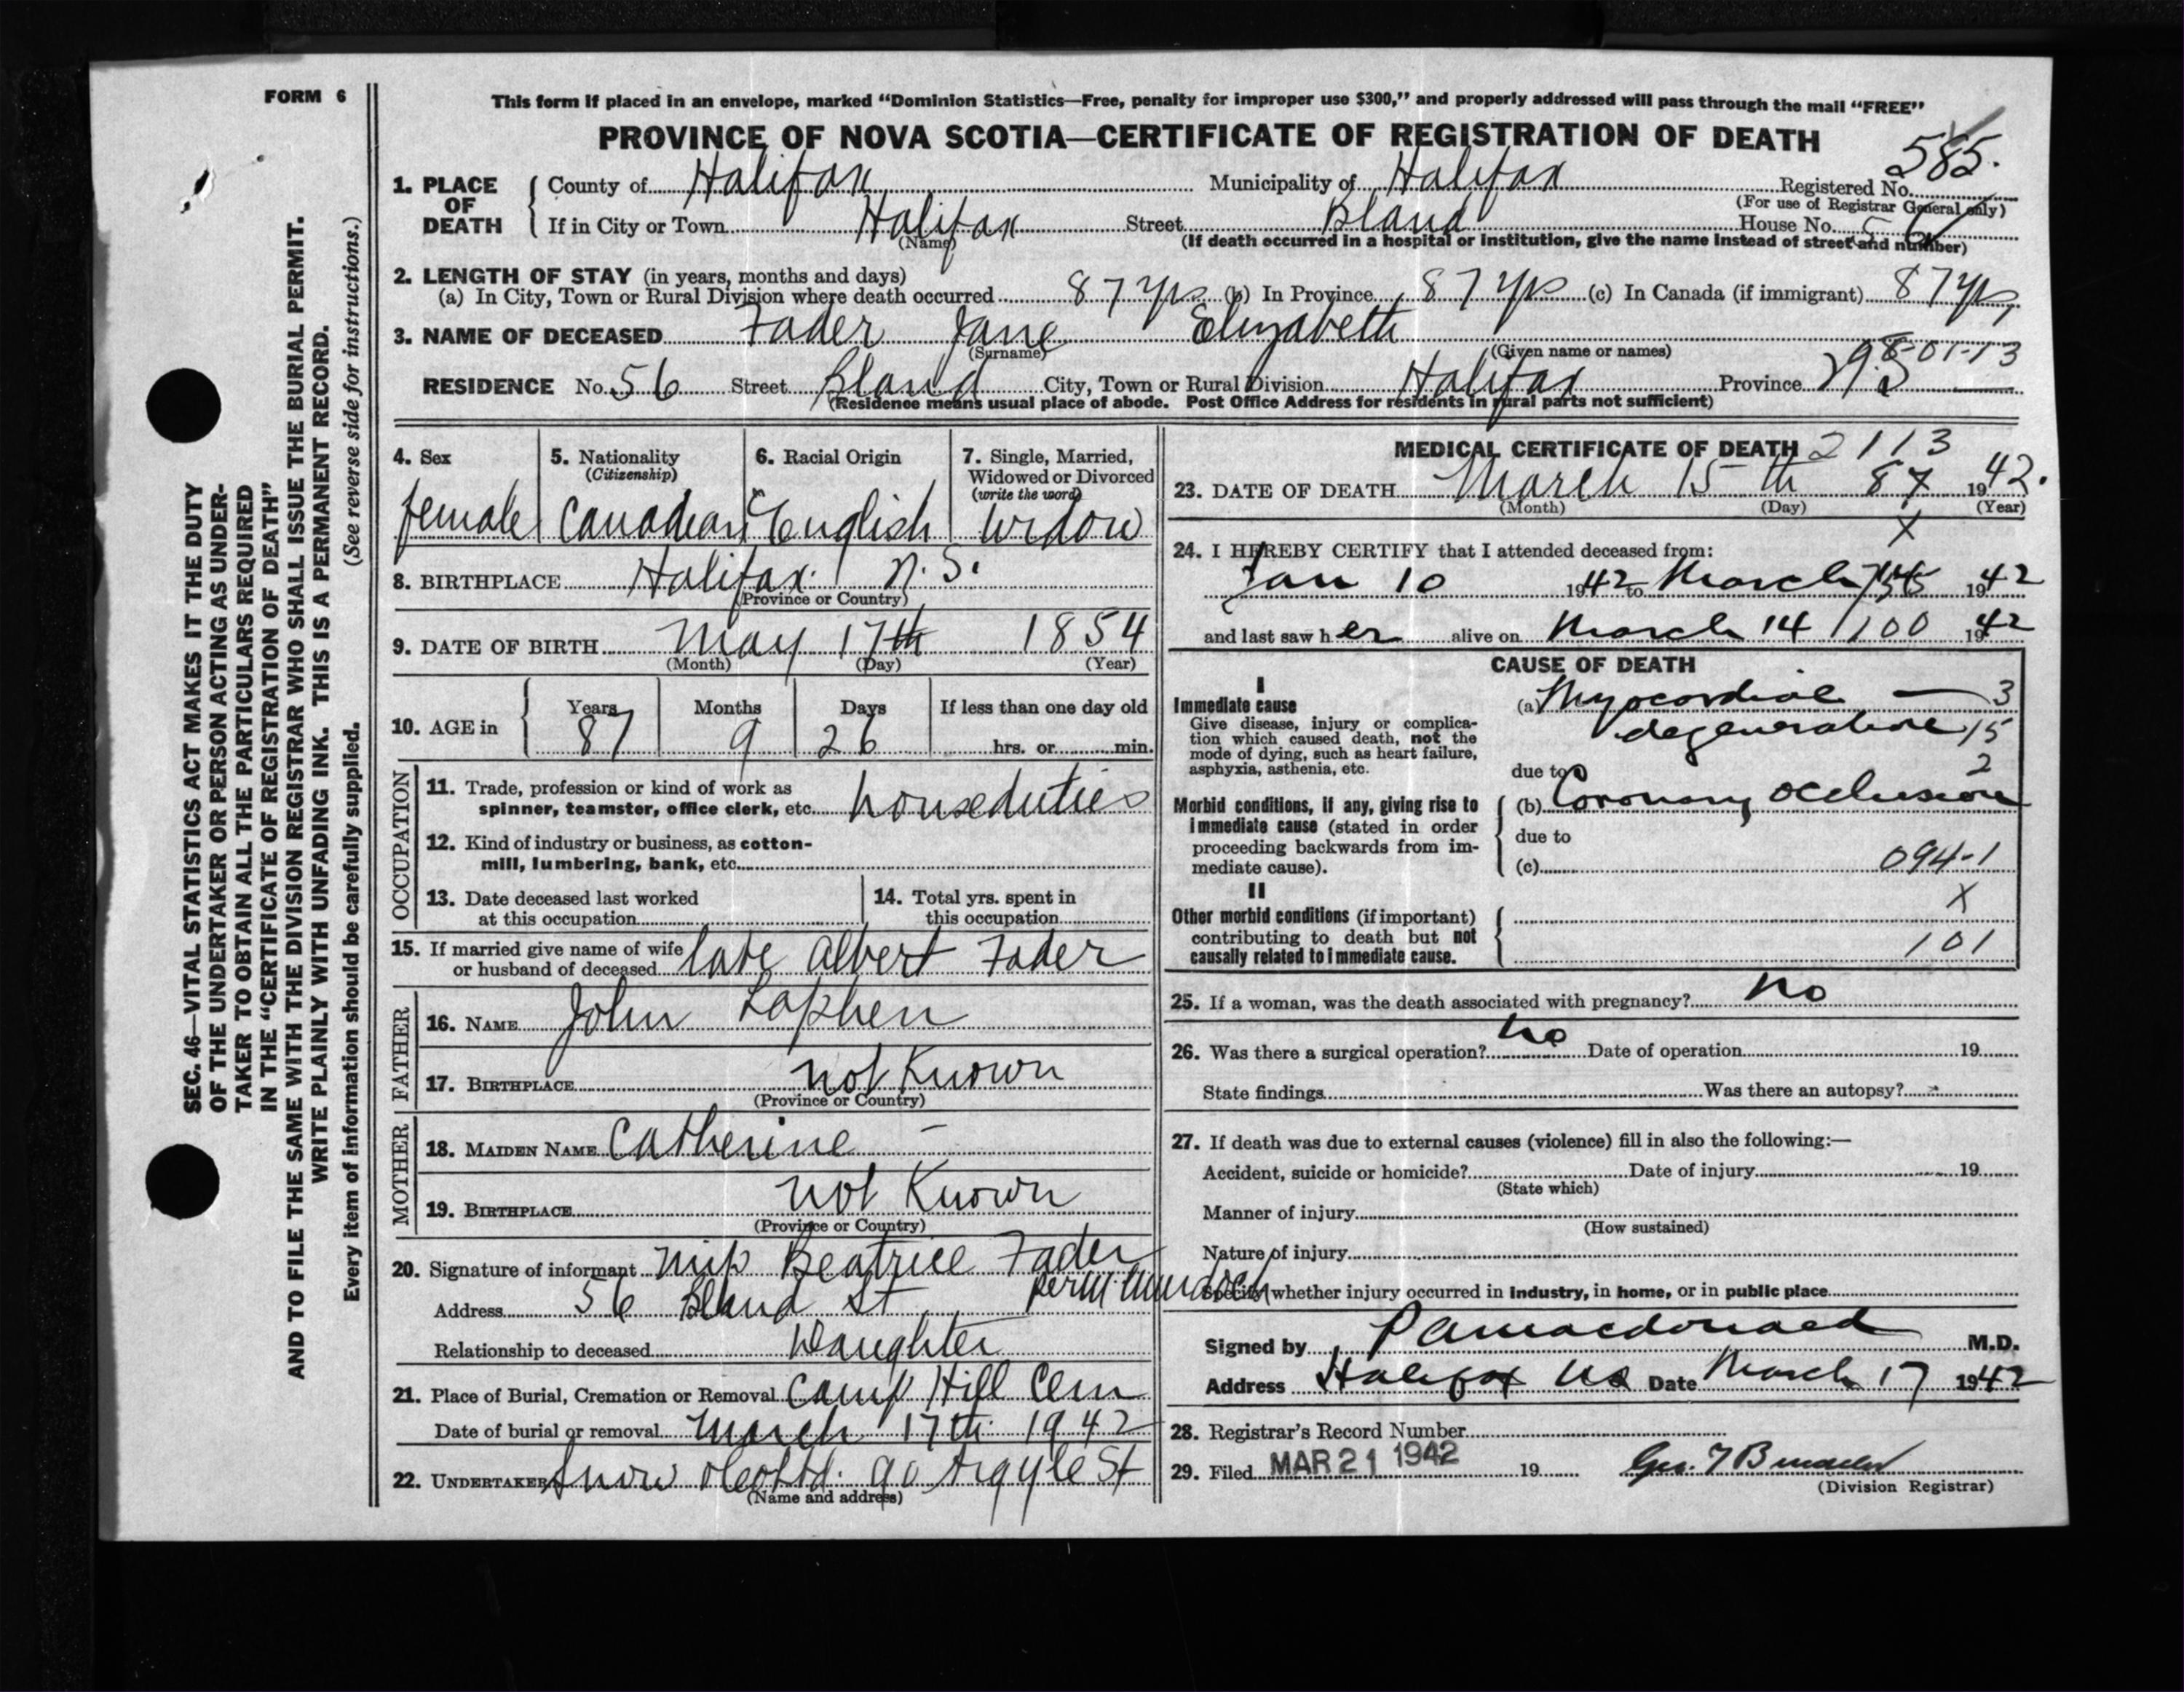 FORM 6
This form if placed in an envelope, marked “Dominion Statistics—Free, penalty for improper use $300,” and properly addressed will pass through the mail “FREE”
PROVINCE OF NOVA SCOTIA—CERTIFICATE OF REGISTRATION OF DEATH
585.
1. PLACE OF DEATH { County of Halifax Municipality of Halifax Registered No.
(For use of Registrar General only)
If in City or Town Halifax Street Bland House No. 56
(Name) (If death occurred in a hospital or institution, give the name instead of street and number)
2. LENGTH OF STAY (in years, months and days)
(a) In City, Town or Rural Division where death occurred 87 yrs (b) In Province 87 yrs (c) In Canada (if immigrant) 87 yrs
3. NAME OF DECEASED Fader Jane Elizabeth
(Surname) (Given name or names)
RESIDENCE No. 56 Street Bland City, Town or Rural Division Halifax Province N.S.
(Residence means usual place of abode. Post Office Address for residents in rural parts not sufficient)
4. Sex
female
5. Nationality
(Citizenship)
Canadian
6. Racial Origin
English
7. Single, Married,
Widowed or Divorced
(write the word)
widow
8. BIRTHPLACE Halifax N.S.
(Province or Country)
9. DATE OF BIRTH May 17th 1854
(Month) (Day) (Year)
10. AGE in { Years Months Days If less than one day old
87 9 26 hrs. or min.
OCCUPATION
11. Trade, profession or kind of work as
spinner, teamster, office clerk, etc. houseduties
12. Kind of industry or business, as cotton-
mill, lumbering, bank, etc.
13. Date deceased last worked
at this occupation
14. Total yrs. spent in
this occupation
15. If married give name of wife
or husband of deceased late Albert Fader
FATHER
16. NAME John Lophen
17. BIRTHPLACE not Known
(Province or Country)
MOTHER
18. MAIDEN NAME Catherine —
19. BIRTHPLACE not Known
(Province or Country)
20. Signature of informant Miss Beatrice Fader
Address 56 Bland St
Relationship to deceased Daughter
21. Place of Burial, Cremation or Removal Camp Hill Cem
Date of burial or removal March 17th 1942
22. UNDERTAKER Snow & Co Ltd. 90 Argyle St
(Name and address)
MEDICAL CERTIFICATE OF DEATH 2113
23. DATE OF DEATH March 15th 87 1942.
(Month) (Day) (Year)
X
24. I HEREBY CERTIFY that I attended deceased from:
Jan 10 1942 to March 1942
and last saw her alive on March 14 1100 1942
CAUSE OF DEATH
I
Immediate cause
Give disease, injury or complica-
tion which caused death, not the
mode of dying, such as heart failure,
asphyxia, asthenia, etc.
(a) Myocardial — 3
degeneration 15
due to 2
Morbid conditions, if any, giving rise to
immediate cause (stated in order
proceeding backwards from im-
mediate cause).
(b) Coronary occlusion
due to
(c) 094-1
II
X
Other morbid conditions (if important)
contributing to death but not
causally related to immediate cause.
101
25. If a woman, was the death associated with pregnancy? no
26. Was there a surgical operation? no Date of operation 19
State findings Was there an autopsy?
27. If death was due to external causes (violence) fill in also the following:—
Accident, suicide or homicide? Date of injury 19
(State which)
Manner of injury
(How sustained)
Nature of injury
Specify whether injury occurred in industry, in home, or in public place
Signed by P A Macdonald M.D.
Address Halifax NS Date March 17 1942
28. Registrar’s Record Number
29. Filed MAR 21 1942 19
(Division Registrar)
SEC. 46—VITAL STATISTICS ACT MAKES IT THE DUTY
OF THE UNDERTAKER OR PERSON ACTING AS UNDER-
TAKER TO OBTAIN ALL THE PARTICULARS REQUIRED
IN THE “CERTIFICATE OF REGISTRATION OF DEATH”
AND TO FILE THE SAME WITH THE DIVISION REGISTRAR WHO SHALL ISSUE THE BURIAL PERMIT.
WRITE PLAINLY WITH UNFADING INK. THIS IS A PERMANENT RECORD.
Every item of information should be carefully supplied. (See reverse side for instructions.)